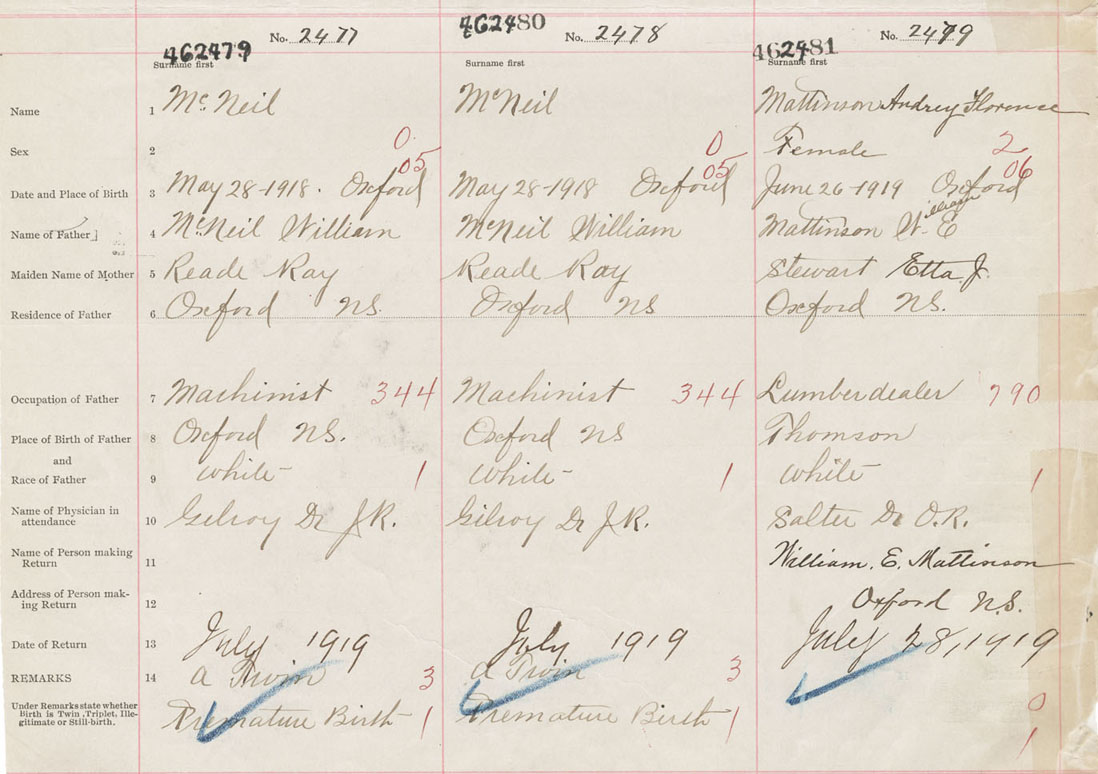 No. 2477 No. 2478 No. 2479
462479 462480 462481
Surname first Surname first Surname first
Name 1 McNeil McNeil Mattinson Audrey Florence
Sex 2 0 0 Female 2
05 05 06
Date and Place of Birth 3 May 28-1918. Oxford May 28-1918 Oxford June 26-1919 Oxford
William
Name of Father 4 McNeil William McNeil William Mattinson W. E
Maiden Name of Mother 5 Reade Ray Reade Ray Stewart Etta J.
Residence of Father 6 Oxford NS. Oxford NS Oxford NS.
Occupation of Father 7 Machinist 344 Machinist 344 Lumberdealer 790
Place of Birth of Father 8 Oxford NS. Oxford NS Thomson
and
Race of Father 9 White 1 White 1 White 1
Name of Physician in
attendance 10 Gilroy Dr J.R. Gilroy Dr J.R. Salter Dr O.R.
Name of Person making
Return 11 William. E. Mattinson
Address of Person mak-
ing Return 12 Oxford N.S.
Date of Return 13 July 1919 July 1919 July 28, 1919
REMARKS 14 a Twin 3 a Twin 3
Under Remarks state whether
Birth is Twin, Triplet, Ille-
gitimate or Still-birth. Premature Birth 1 Premature Birth 1 0
1